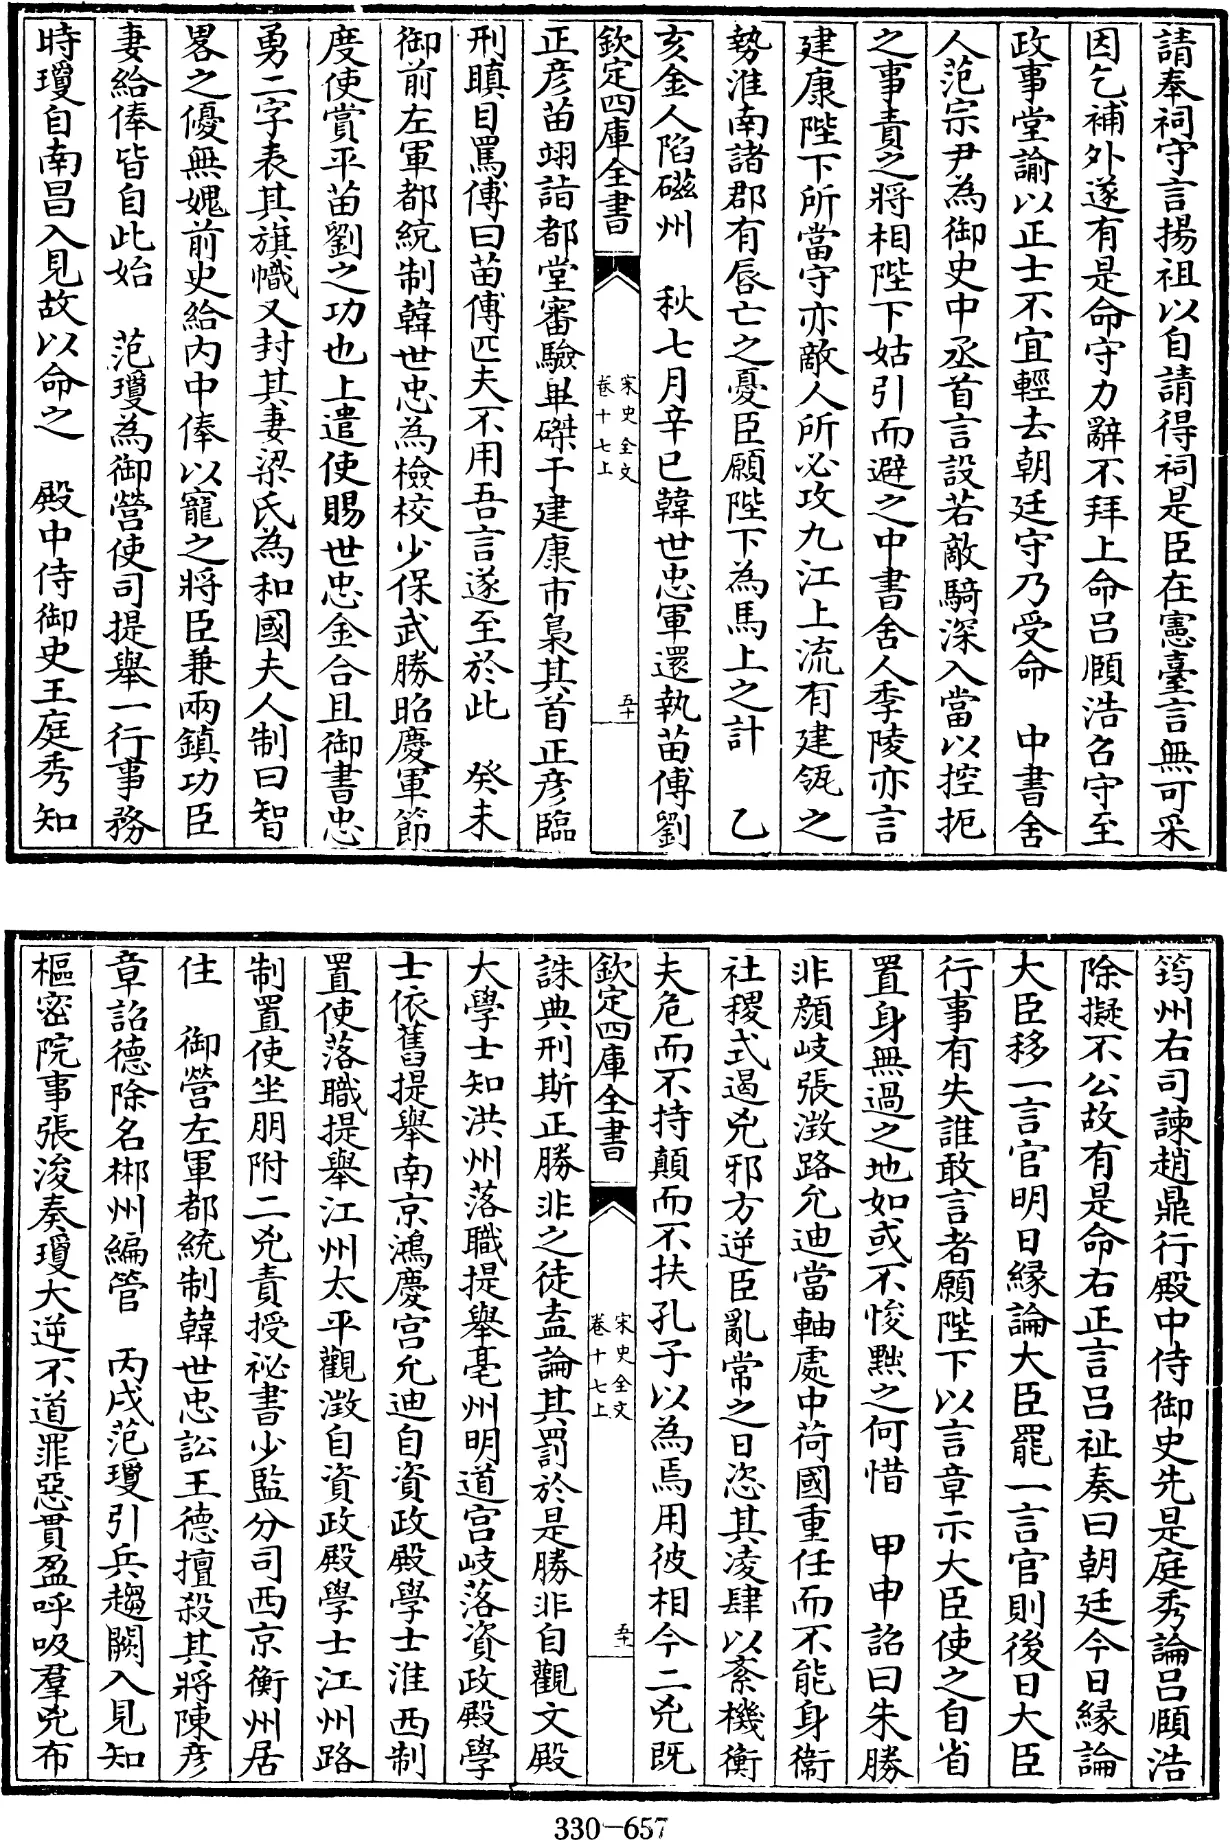 請奉祠守言揚祖以自請得祠是臣在憲臺言無可采
因乞補外遂有是命守力辭不拜上命呂頤浩名守至
政事堂諭以正士不宜輕去朝廷守乃受命　中書舍
人范宗尹為御史中丞首言設若敵騎深入當以控扼
之事責之將相陛下姑引而避之中書舍人季陵亦言
建康陛下所當守亦敵人所必攻九江上流有建瓴之
勢淮南諸郡有唇亡之憂臣願陛下為馬上之計　乙
亥金人陷磁州　秋七月辛巳韓世忠軍還執苗傅劉
欽定四庫全書
宋史全文
卷十七上
五十
正彥苗翊詣都堂審驗畢磔于建康市梟其首正彥臨
刑瞋目罵傅曰苗傅匹夫不用吾言遂至於此　癸未
御前左軍都統制韓世忠為檢校少保武勝昭慶軍節
度使賞平苗劉之功也上遣使賜世忠金合且御書忠
勇二字表其旗幟又封其妻梁氏為和國夫人制曰智
畧之優無媿前史給内中俸以寵之將臣兼兩鎮功臣
妻給俸皆自此始　范瓊為御營使司提舉一行事務
時瓊自南昌入見故以命之　殿中侍御史王庭秀知
筠州右司諫趙鼎行殿中侍御史先是庭秀論呂頤浩
除擬不公故有是命右正言呂祉奏曰朝廷今日縁論
大臣移一言官明日縁論大臣罷一言官則後日大臣
行事有失誰敢言者願陛下以言章示大臣使之自省
置身無過之地如或不悛黜之何惜　甲申詔曰朱勝
非顔岐張澂路允迪當軸處中荷國重任而不能身衛
社稷式遏兇邪方逆臣亂常之日恣其凌肆以紊機衡
夫危而不持顛而不扶孔子以為焉用彼相今二兇既
欽定四庫全書
宋史全文
卷十七上
五十一
誅典刑斯正勝非之徒盍論其罰於是勝非自觀文殿
大學士知洪州落職提舉亳州明道宫岐落資政殿學
士依舊提舉南京鴻慶宫允迪自資政殿學士淮西制
置使落職提舉江州太平觀澂自資政殿學士江州路
制置使坐朋附二兇責授祕書少監分司西京衡州居
住　御營左軍都統制韓世忠訟王德擅殺其將陳彦
章詔德除名郴州編管　丙戌范瓊引兵趨闕入見知
樞密院事張浚奏瓊大逆不道罪惡貫盈呼吸羣兇布
330-657